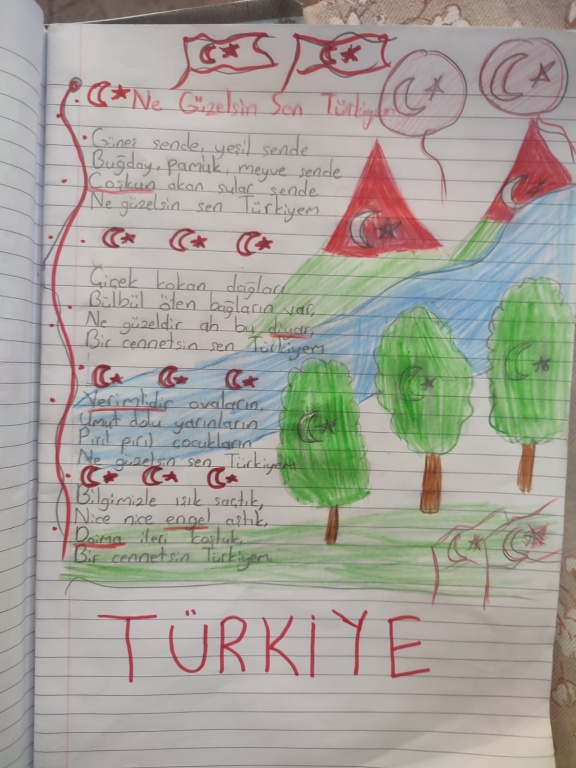 Ne Güzelsin Sen Türkiyem
Güneş sende, yeşil sende
Buğday, pamuk, meyve sende
Coşkun akan sular sende
Ne güzelsin sen Türkiyem
Çiçek kokan dağları
Bülbül öten bağların var,
Ne güzeldir ah bu diyar,
Bir cennetsin sen Türkiyem
Verimlidir ovaların,
Umut dolu yarınların
Pırıl pırıl çocukların
Ne güzelsin sen Türkiyem
Bilgimizle ışık saçtık,
Nice nice engel aştık,
Daima ileri koştuk,
Bir cennetsin Türkiyem.
TÜRKİYE